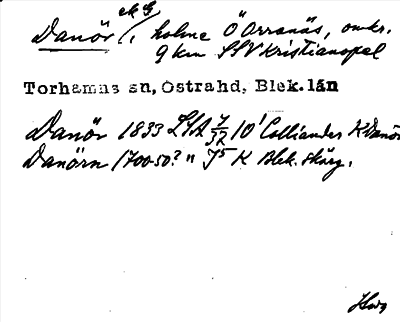 Danör, holme Ö Orranäs, omkr.
9 km SSV Kristianopel
Torhamns sn, Östrahd, Blek. län
Danör 1833 LSA 10' Colliander K Danör
Danörn 1700-50? " K Blek. skärg.